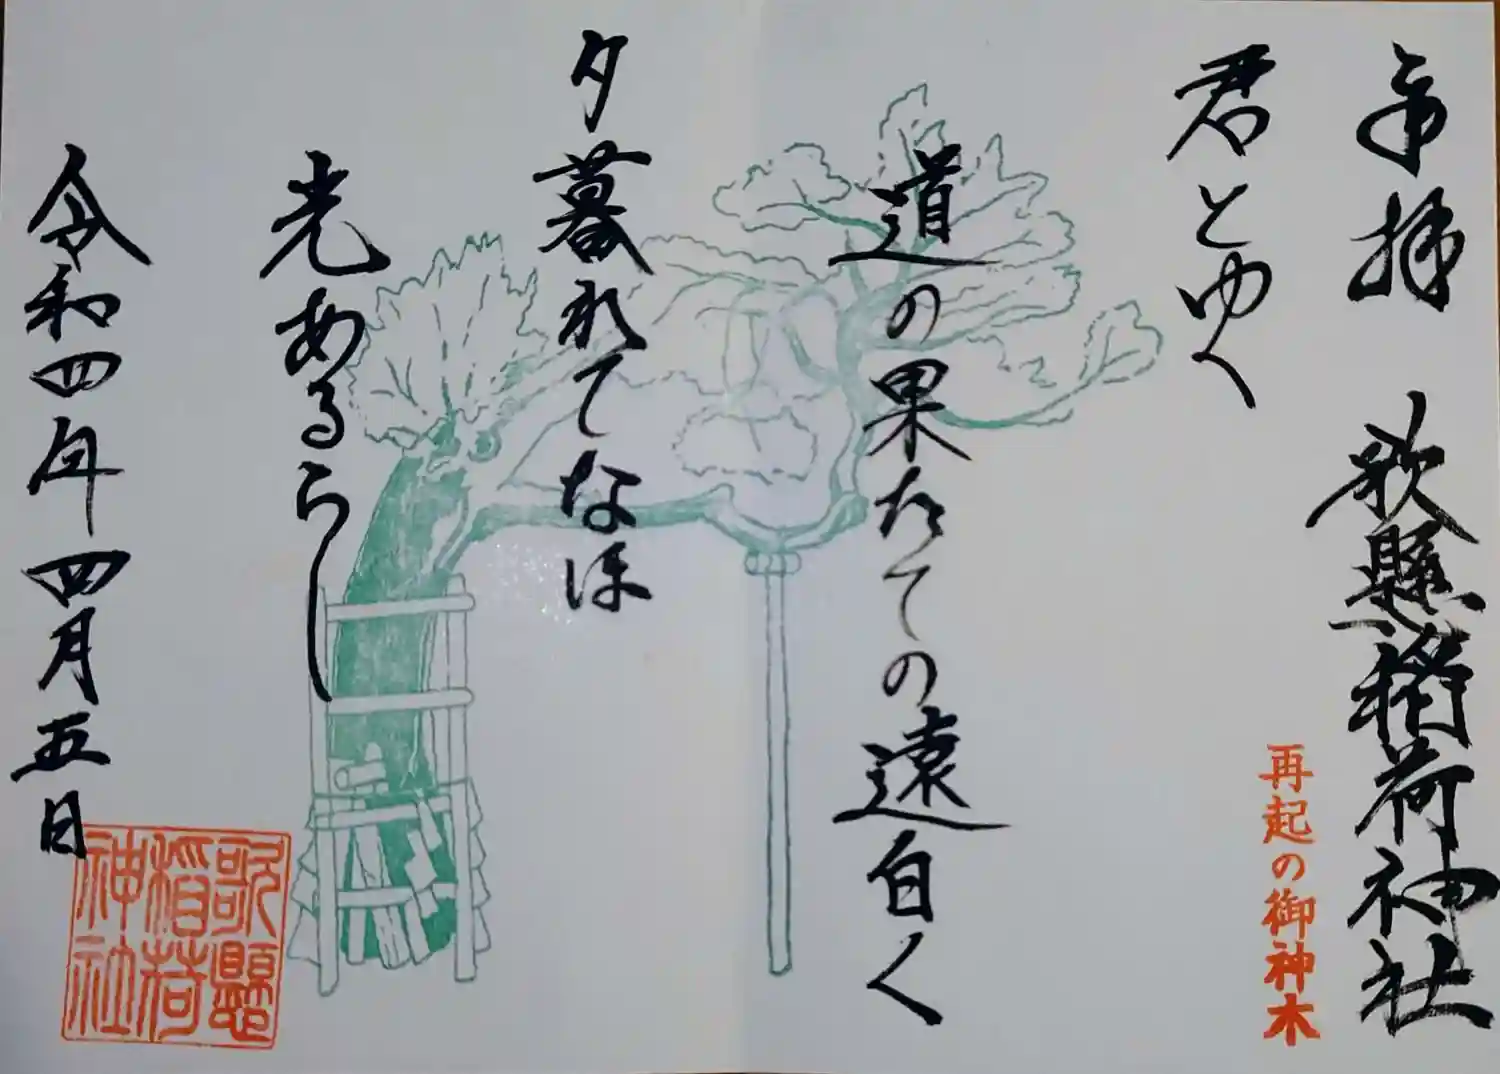 奉拝 歌懸稲荷神社
再起の御神木
君とゆく
道の果たての遠白く
夕暮れてなほ
光あるらし
令和四年四月五日
歌懸
稲荷
神社